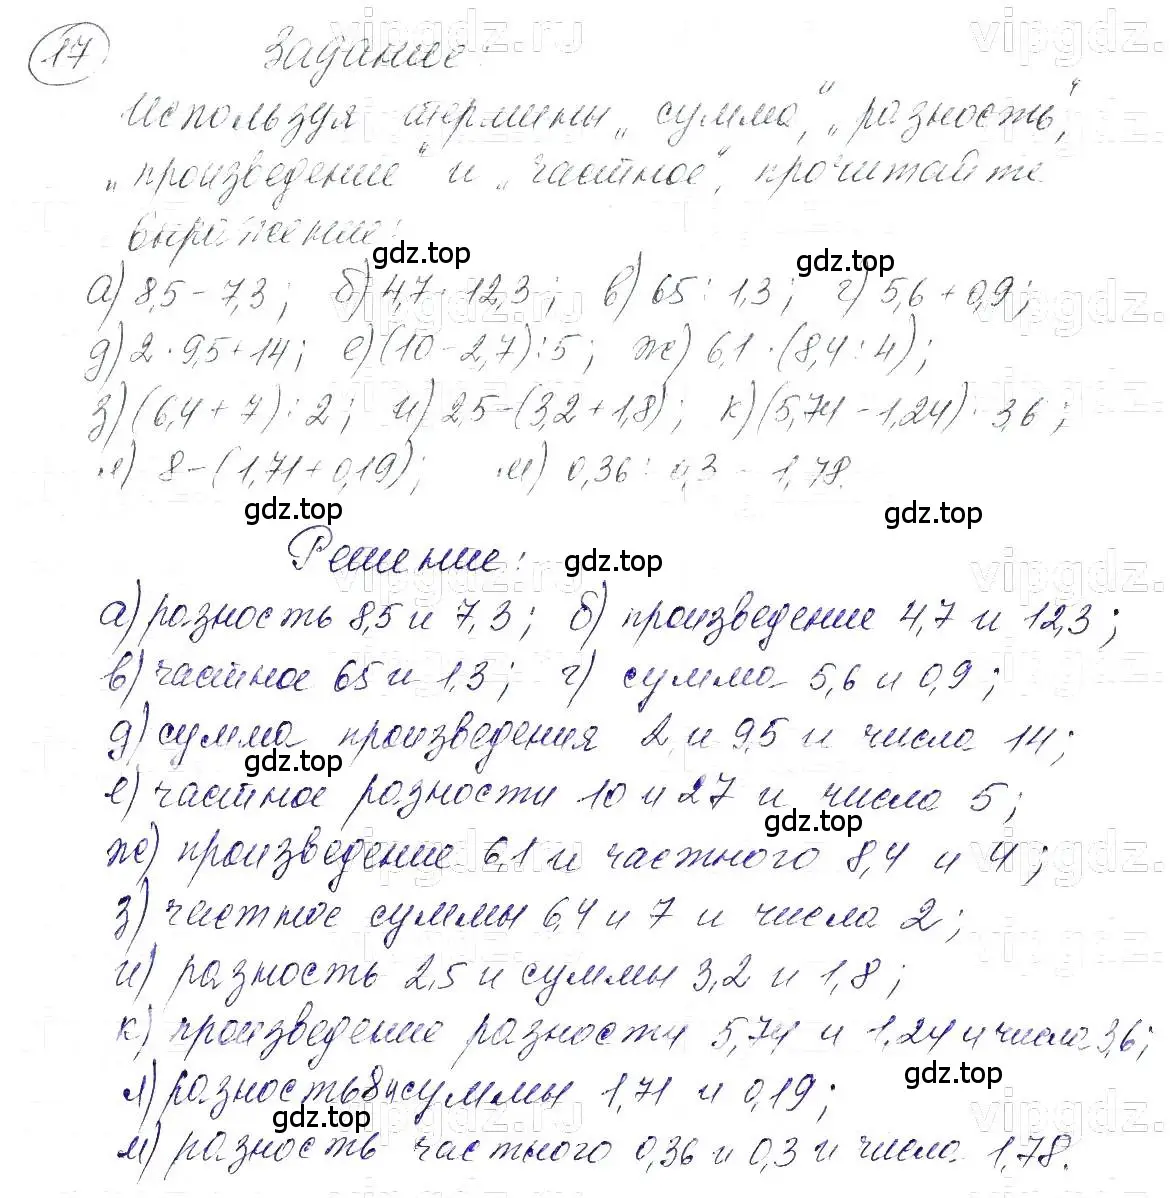 vipgdz.ru vipgdz.
17 Задание:
Используя термины „сумма“, „разность“,
„произведение“ и „частное“, прочитайте
выражение:
gdz.top gdz.top
а) 8,5 - 7,3; б) 4,7 · 12,3; в) 65 : 1,3; г) 5,6 + 0,9;
д) 2 · 9,5 + 14; е) (10 - 2,7) : 5; ж) 6,1 · (8,4 : 4);
з) (6,4 + 7) : 2; и) 2,5 - (3,2 + 1,8); к) (5,74 - 1,24) · 3,6;
л) 8 - (1,71 + 0,19); м) 0,36 : 0,3 - 1,78.
gdz.top gdz.top
Решение: gdz.top
vipgdz.ru vipgdz.
а) разность 8,5 и 7,3; б) произведение 4,7 и 12,3;
в) частное 65 и 1,3; г) сумма 5,6 и 0,9;
д) сумма произведения 2 и 9,5 и числа 14;
gdz.top
е) частное разности 10 и 2,7 и числа 5;
gdz.top
ж) произведение 6,1 и частного 8,4 и 4;
з) частное суммы 6,4 и 7 и числа 2;
и) разность 2,5 и суммы 3,2 и 1,8;
к) произведение разности 5,74 и 1,24 и числа 3,6;
gdz.top
л) разность 8 и суммы 1,71 и 0,19;
gdz.top
м) разность частного 0,36 и 0,3 и числа 1,78.